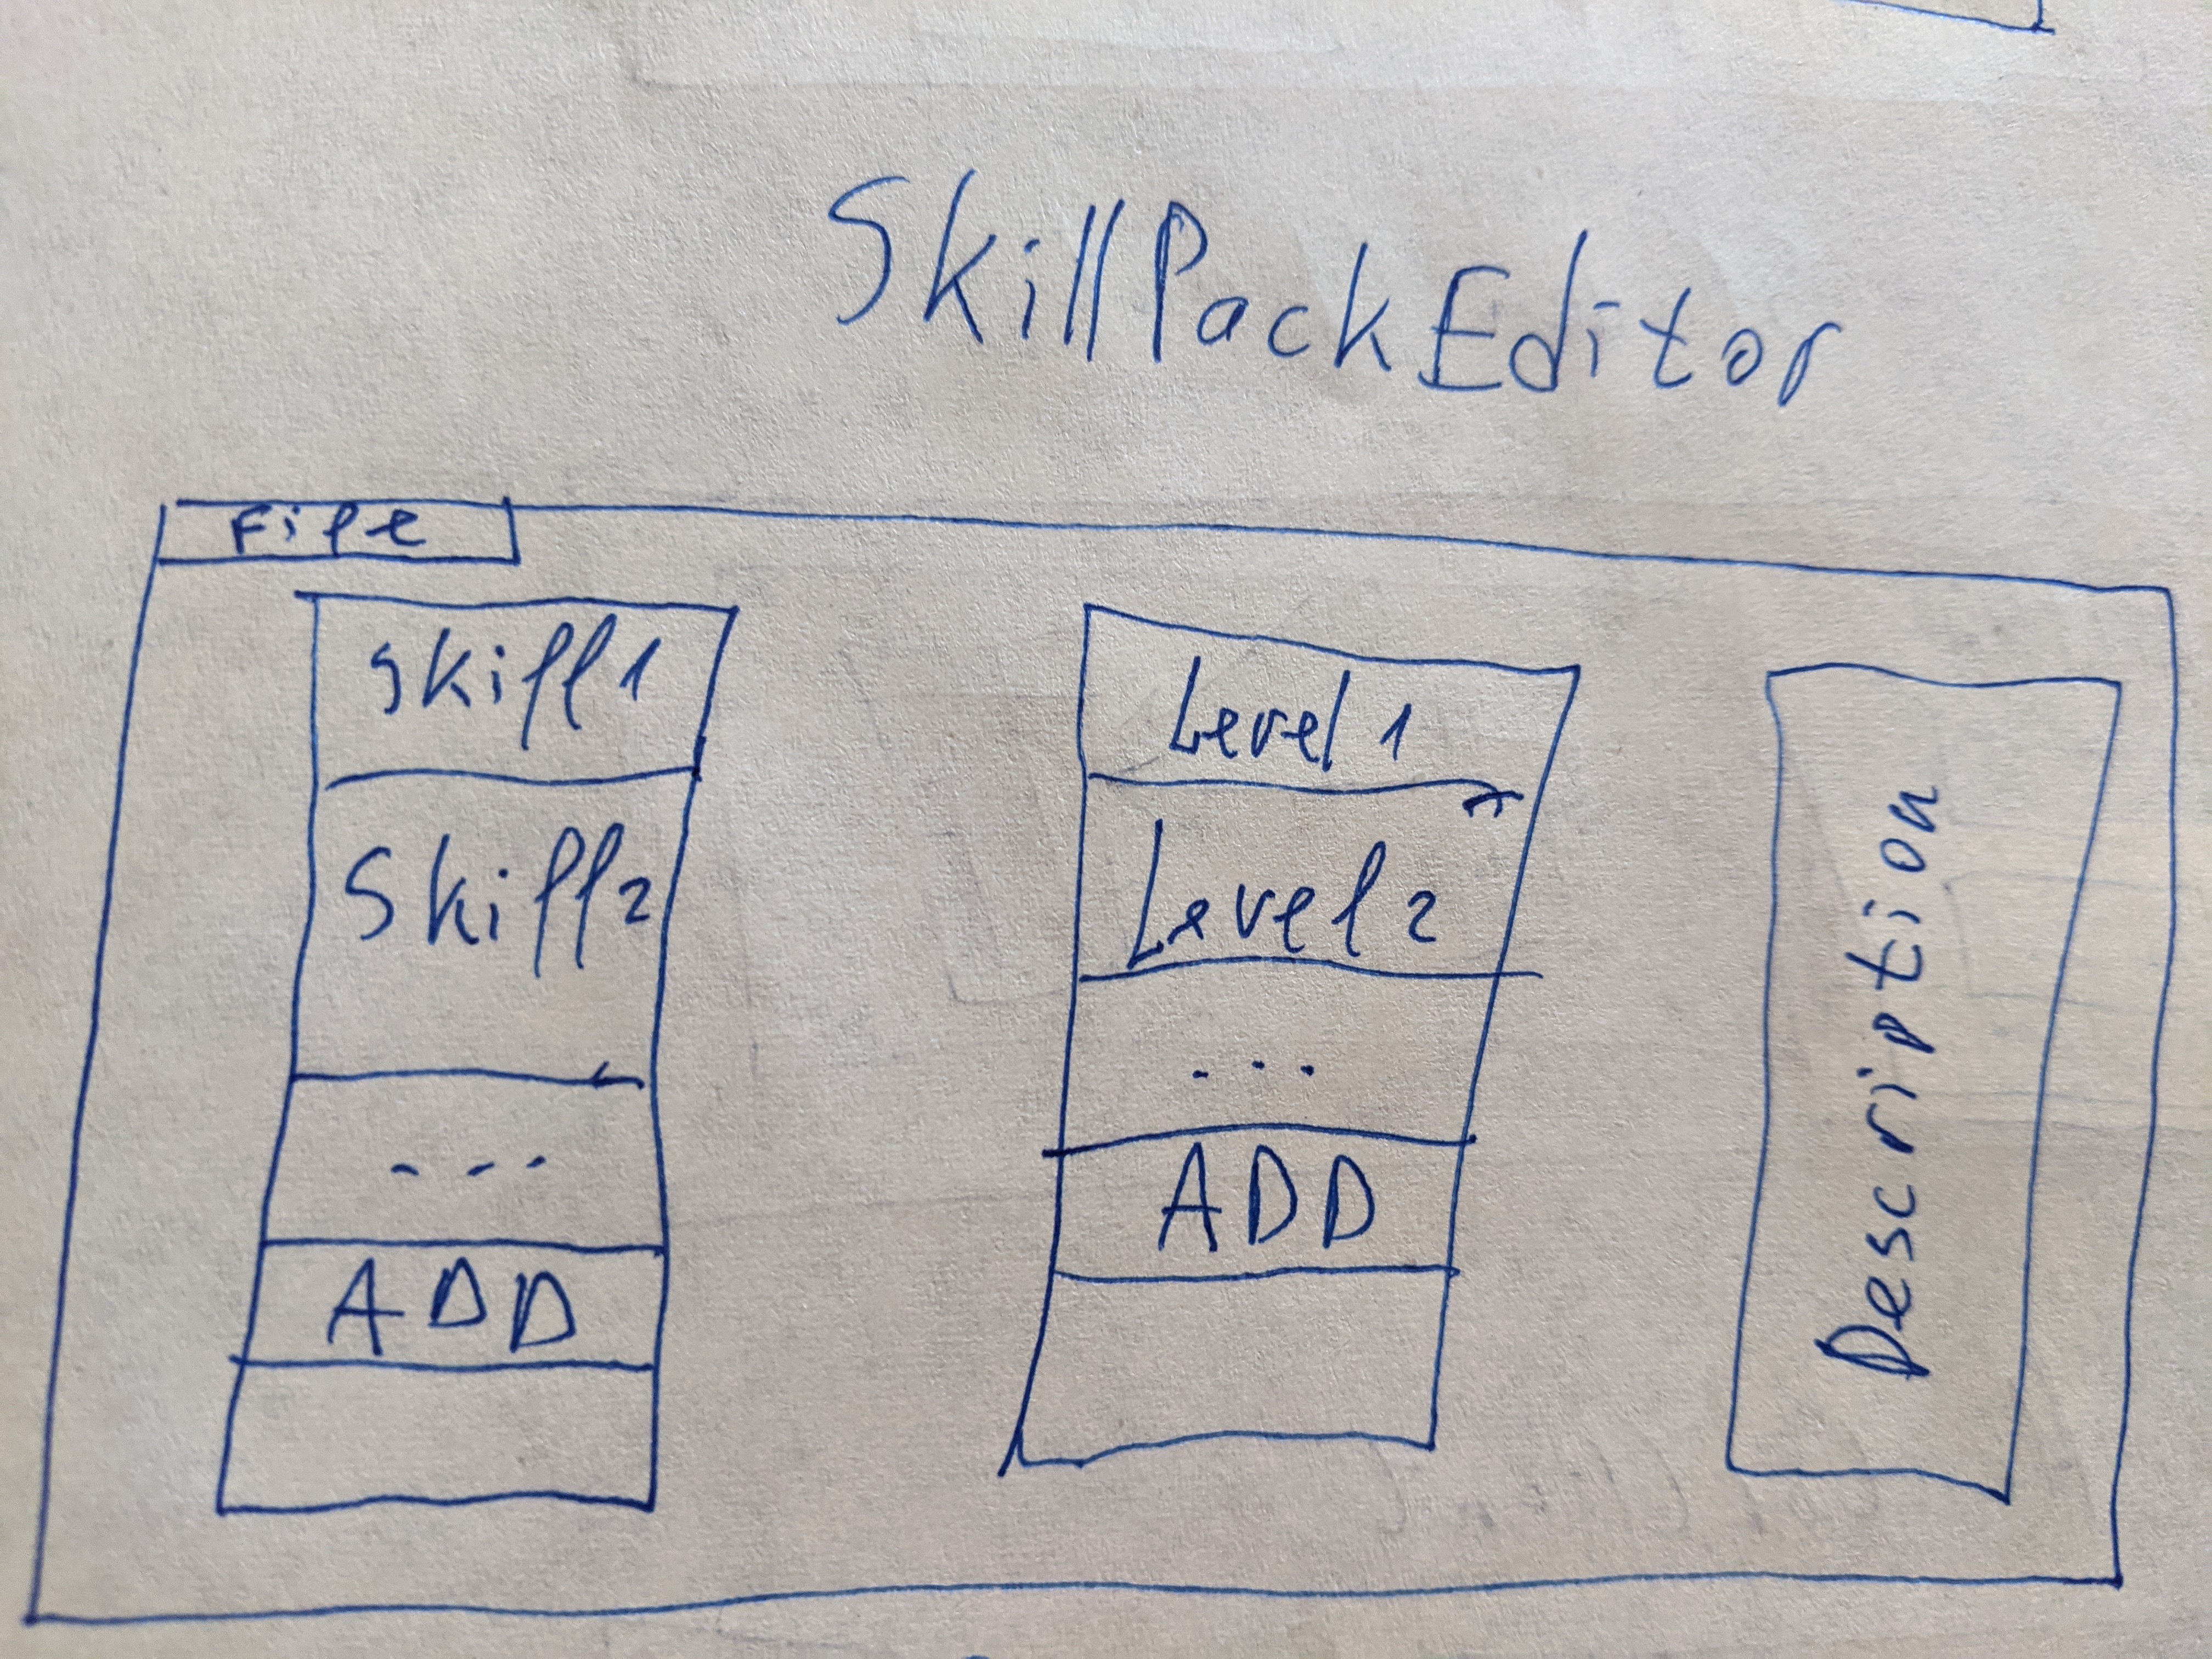 SkillPackEditor
File
Skill1
Skill2
...
ADD
Level 1
Level 2
...
ADD
Description